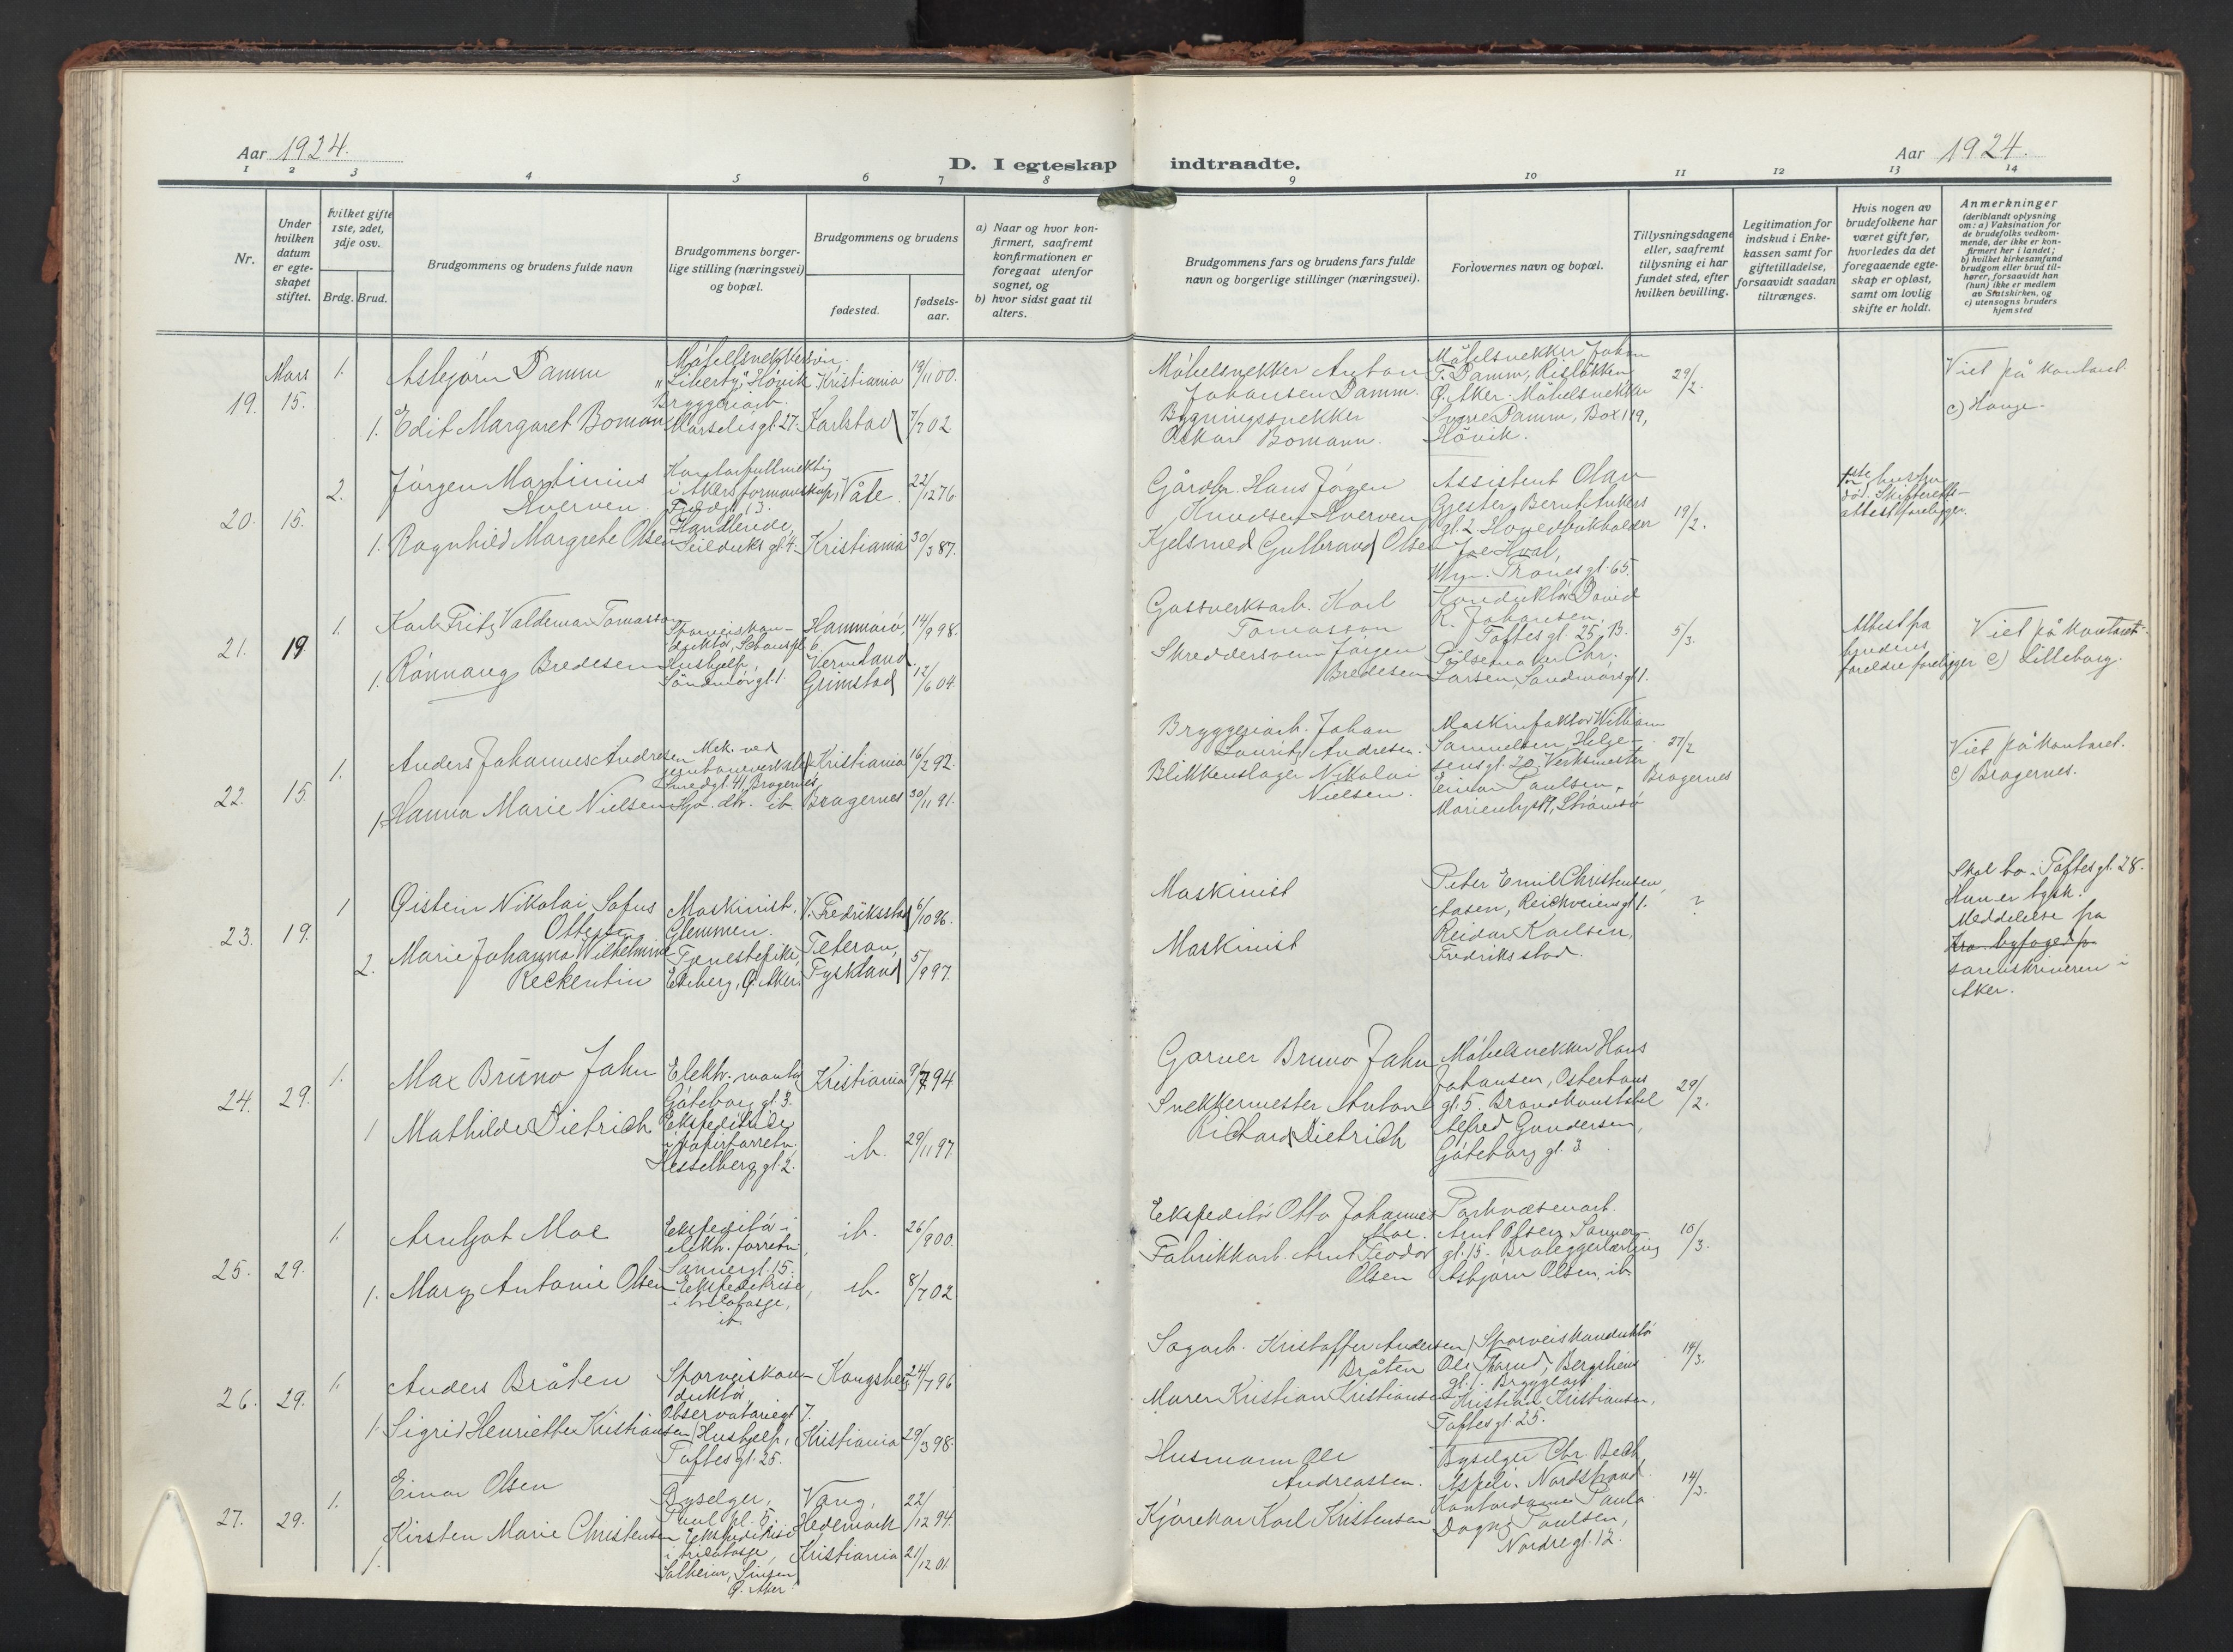 Aar 1924.
D. I egteskap indtraadte.
Aar 1924.
1 2 3 4 5 6 7 8 9 10 11 12 13 14
Nr.
Under hvilken datum er egteskapet stiftet.
Hvilket gifte 1ste, 2det, 3dje osv.
Brdg. Brud.
Brudgommens og brudens fulde navn
Brudgommens borgerlige stilling (næringsvei) og bopæl.
Brudgommens og brudens
fødested.
fødselsaar.
a) Naar og hvor konfirmert, saafremt konfirmationen er foregaat utenfor sognet, og
b) hvor sidst gaat til alters.
Brudgommens fars og brudens fars fulde navn og borgerlige stillinger (næringsvei).
Forlovernes navn og bopæl.
Tillysningsdagene eller, saafremt tillysning ei har fundet sted, efter hvilken bevilling.
Legitimation for indskud i Enkekassen samt for giftetilladelse, forsaavidt saadan tiltrænges.
Hvis nogen av brudefolkene har været gift før, hvorledes da det foregaaende egteskap er opløst, samt om lovlig skifte er holdt.
Anmerkninger
(deriblandt oplysning om: a) Vaksination for de brudefolks vedkommende, der ikke er konfirmert her i landet; b) hvilket kirkesamfund brudgom eller brud tilhører, forsaavidt han (hun) ikke er medlem av Statskirken, og c) utensogns bruders hjemsted
19. Mars 15.
1. Asbjørn Damm
Møbelsnekkersv.
"Liberty", Høvik
Kristiania 19/11 00.
1. Edit Margaret Boman
Bryggeriarb.
Marselisgt. 27.
Karlstad 7/7 02
Møbelsnekker Anton
Johansen Damm.
Bygningssnekker
Oskar Bomann.
Møbelsnekker Johan
T. Damm, Risløkken
Ø. Aker. Møbelsnekker
Sverre Damm, Box 119,
Høvik.
29/2.
Viet på kontoret.
c) Hauge.
20. 15.
2. Jørgen Martinius
Hverven.
Kontorfullmektig
i Akers formanskap,
Våle. 22/12 76.
1. Ragnhild Margrethe Olsen
Handlende,
Seilduksgt. 4.
Kristiania 30/3 87.
Gårdbr. Hans Jørgen
Knudsen Hverven
Kjelsmed Gulbrand Olsen
Assistent Olav
Gjester, Bernt Ankers
gt. 2. Hovedbokholder
65.
19/2.
1ste hustru
død. Skifteretts-
attest foreligger.
21. 19
1. Karl Fritz Valdemar Tomasson
Sporveiskon-
duktør,
Hammarö, 14/9 98.
Vermland.
1. Rønnaug Bredesen
Hushjelp,
Søndmørgt. 1.
Grimstad 12/6 04.
Gassverksarb. Karl
Tomasson
Skreddersvenn Jørgen
Bredesen
Konduktør David
R. Johansen,
Toftesgt. 25, B.
Pølsemaker Chr.
Larsen, Søndmørsgt. 1.
5/3.
Attest fra
brudens
foreldre foreligger
Viet på kontoret.
c) Lilleborg.
22. 15.
1. Anders Johannes Andresen
Mek. ved
jernbaneverksted
Smedgt. 41, Bragernes,
Kristiania 16/2 92.
1. Hanna Marie Nielsen
Hjv. dtr. ib.
Bragernes 30/11 91.
Bryggeriarb. Johan
Lauritz Andresen.
Blikkenslager Nikolai
Nielsen.
Maskinfaktor William
Samuelsen, Helge-
sensgt. 20. Verksmester
Einar Paulsen,
Marienlyst 9, Strømsø
27/2
Bragernes
Viet på kontoret.
c) Bragernes.
23. 19.
1 Øistein Nikolai Sofus
Ottesen
Maskinist,
Glemmen.
V. Fredriksstad 6/10 96.
2. Marie Johanna Wilhelmine
Reckentin
Tjenestepike,
Ekeberg, Ø. Aker.
Teteran,
Tyskland 5/9 97.
Maskinist
Maskinist
Peter Emil Christensen,
Aasen, Reichveiensgt. 1.
Reidar Karlsen,
Fredriksstad.
?
Skal bo. Toftesgt. 28.
Hun er tysk.
Meddelelse fra
fra byfoged fo
sorenskriveren i
Aker.
24. 29.
1. Max Bruno Jahn
Elektr. montør
Gøteborggt. 3.
Kristiania 9/7 94
1 Mathilde Dietrich
Ekspeditrise
i papirforretn.
Hesselberggt. 2.
ib. 29/11 97.
Garver Bruno Jahn
Snekkermester Anton
Richard Dietrich
Møbelsnekker Hans
Johansen, Osterhaus
gt. 5. Brandkonstabel
Alfred Gundersen,
Gøteborggt. 3
29/2.
25. 29.
1. Arnljot Moe
Ekspeditør i
elektr. forretn.
Sannergt. 15.
ib. 26/9 00.
1. Mary Antonie Olsen
Ekspeditrise,
ib.
ib. 8/7 02
Ekspeditør Otto Johannes
Moe.
Fabrikkarb. Arnt Teodor
Olsen
Parkvæsenarb.
Arnt Olsen Sanner-
gt. 15. Broleggerlærling
Asbjørn Olsen, ib.
10/3.
26. 29.
1. Anders Bråten
Sporveiskon-
duktør
Observatoriegt. 7.
Kongsberg 24/7 96
1 Sigrid Henriette Kristiansen
Hushjelp,
Toftesgt. 25.
Kristiania 29/3 98.
Sagarb. Kristoffer Andersen
Bråten
Murer Kristian Kristiansen
Sporveiskonduktør
Bergsliens
gt. 1. Bryggearb.
Kristian Kristiansen,
Toftesgt. 25.
14/3.
27. 29.
1. Einar Olsen
Byselger,
Paul pl. 5.
Vang,
Hedemark 22/12 94.
1. Kirsten Marie Christensen
Ekspeditrise
Solheim, Sinsen
Ø. Aker.
Kristiania 21/12 01.
Husmann Ole
Andreassen.
Kjørekar Karl Kristensen
Byselger Chr. Bech
Nordstrand
Kontordame Paula
Dagny Paulsen,
Nordregt. 12.
14/3.